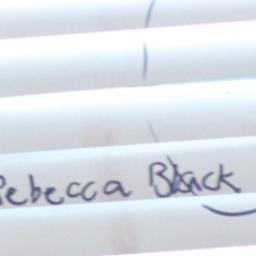 Rebecca Black